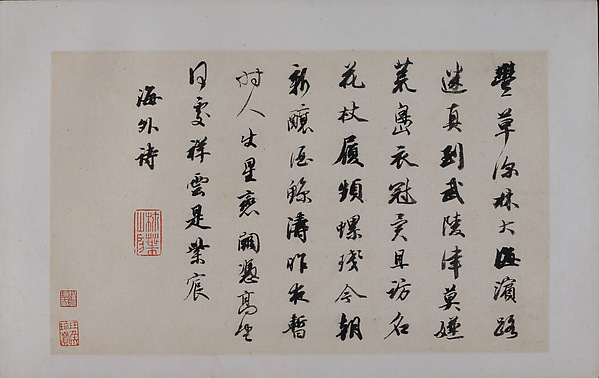 豐草深林大海濱路
迷真到武陵津莫嫌
荒島衣冠異且訪名
花杖履頻螺琖今朝
新釀酒鯨濤昨夜暫
時人星戀闕憑高
處祥雲是紫宸
海外詩